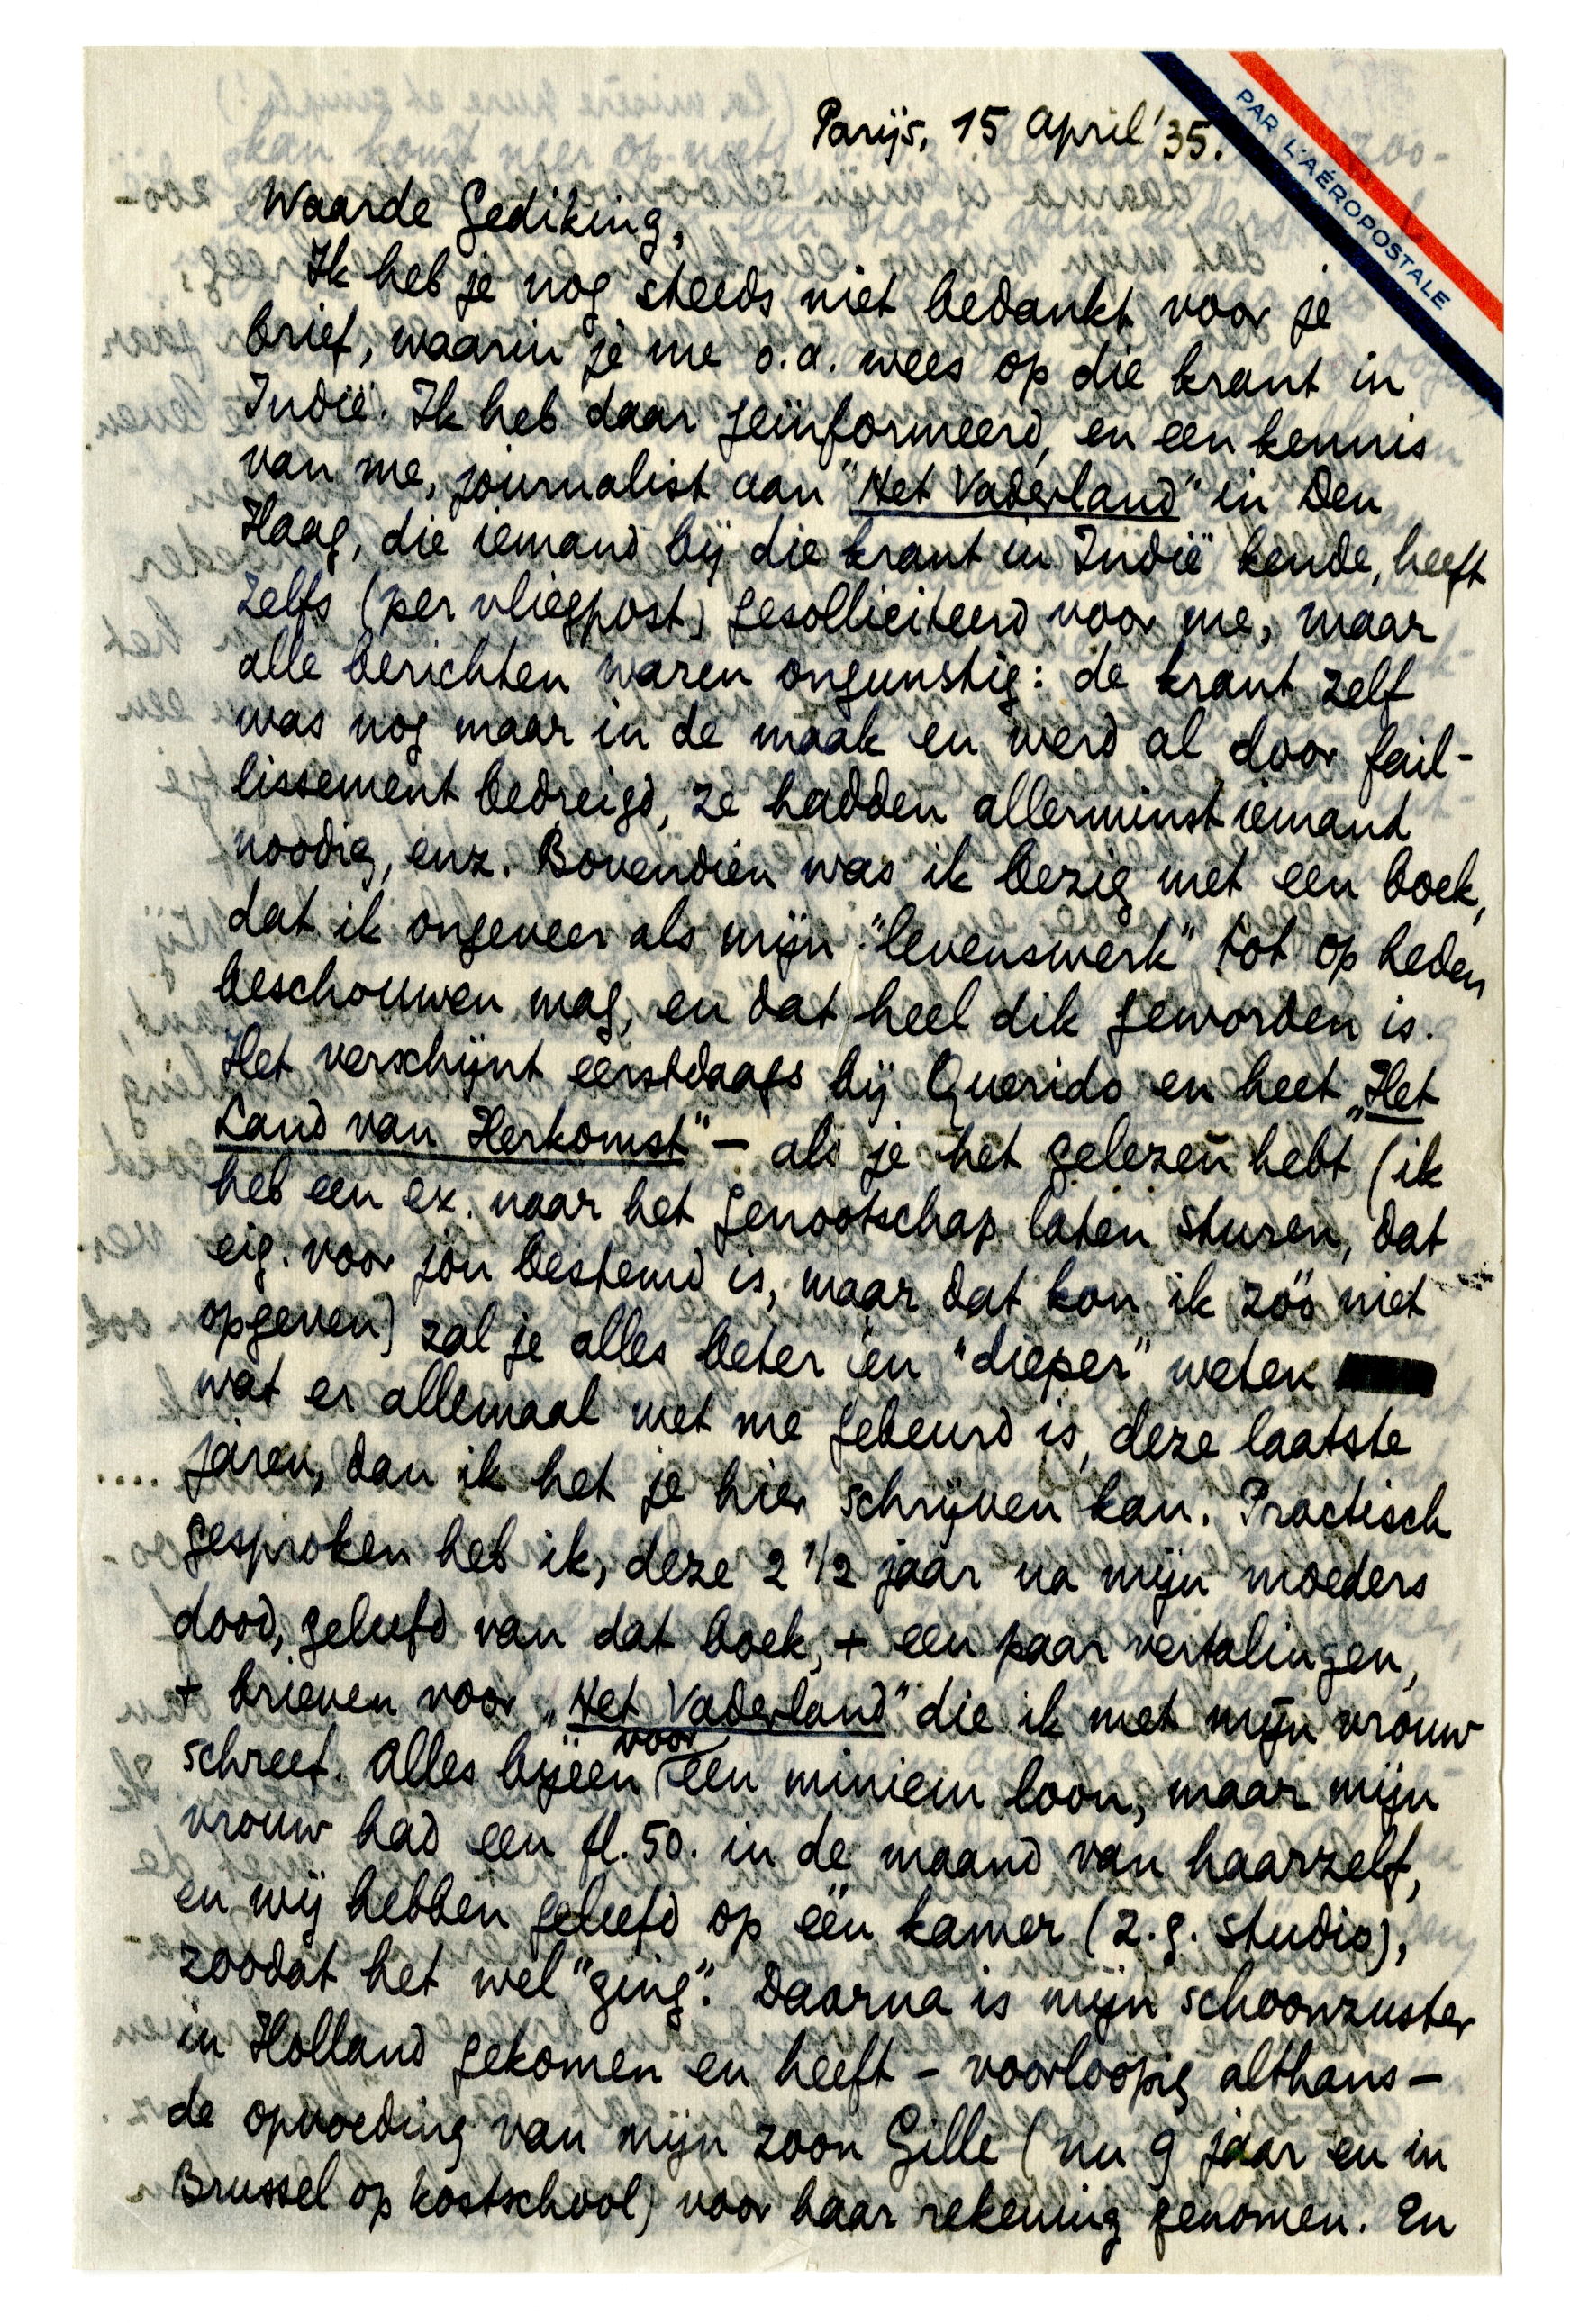 PAR L'AÉROPOSTALE
Parijs, 15 april '35.
Waarde Gediking,
Ik heb je nog steeds niet bedankt voor je
brief, waarin je me o.a. wees op die krant in
Indië. Ik heb daar geïnformeerd, en een kennis
van me, journalist aan "Het Vaderland" in Den
Haag, die iemand bij die krant in Indië kende, heeft
zelfs (per vliegpost) gesolliciteerd voor me, maar
alle berichten waren ongunstig: de krant zelf
was nog maar in de maak en werd al door fail-
lissement bedreigd, ze hadden allerminst iemand
noodig, enz. Bovendien was ik bezig met een boek,
dat ik ongeveer als mijn "levenswerk" tot op heden
beschouwen mag, en dat heel dik geworden is.
Het verschijnt eerstdaags bij Querido en heet „Het
Land van Herkomst" – als je het gelezen hebt (ik
heb een ex. naar het Genootschap laten sturen, dat
eig. voor jou bestemd is, maar dat kon ik zóó niet
opgeven) zal je alles beter en "dieper" weten
wat er allemaal met me gebeurd is, deze laatste
.... jaren, dan ik het je hier schrijven kan. Practisch
gesproken heb ik, deze 2 1/2 jaar na mijn moeders
dood, geleefd van dat boek, + een paar vertalingen,
+ brieven voor „Het Vaderland" die ik met mijn vrouw
schreef. Alles bijeen voor een miniem loon, maar mijn
vrouw had een fl. 50. in de maand van haarzelf,
en wij hebben geleefd op één kamer (z.g. studio),
zoodat het wel "ging". Daarna is mijn schoonzuster
in Holland gekomen en heeft – voorloopig althans –
de opvoeding van mijn zoon Gille (nu 9 jaar en in
Brussel op kostschool) voor haar rekening genomen. En